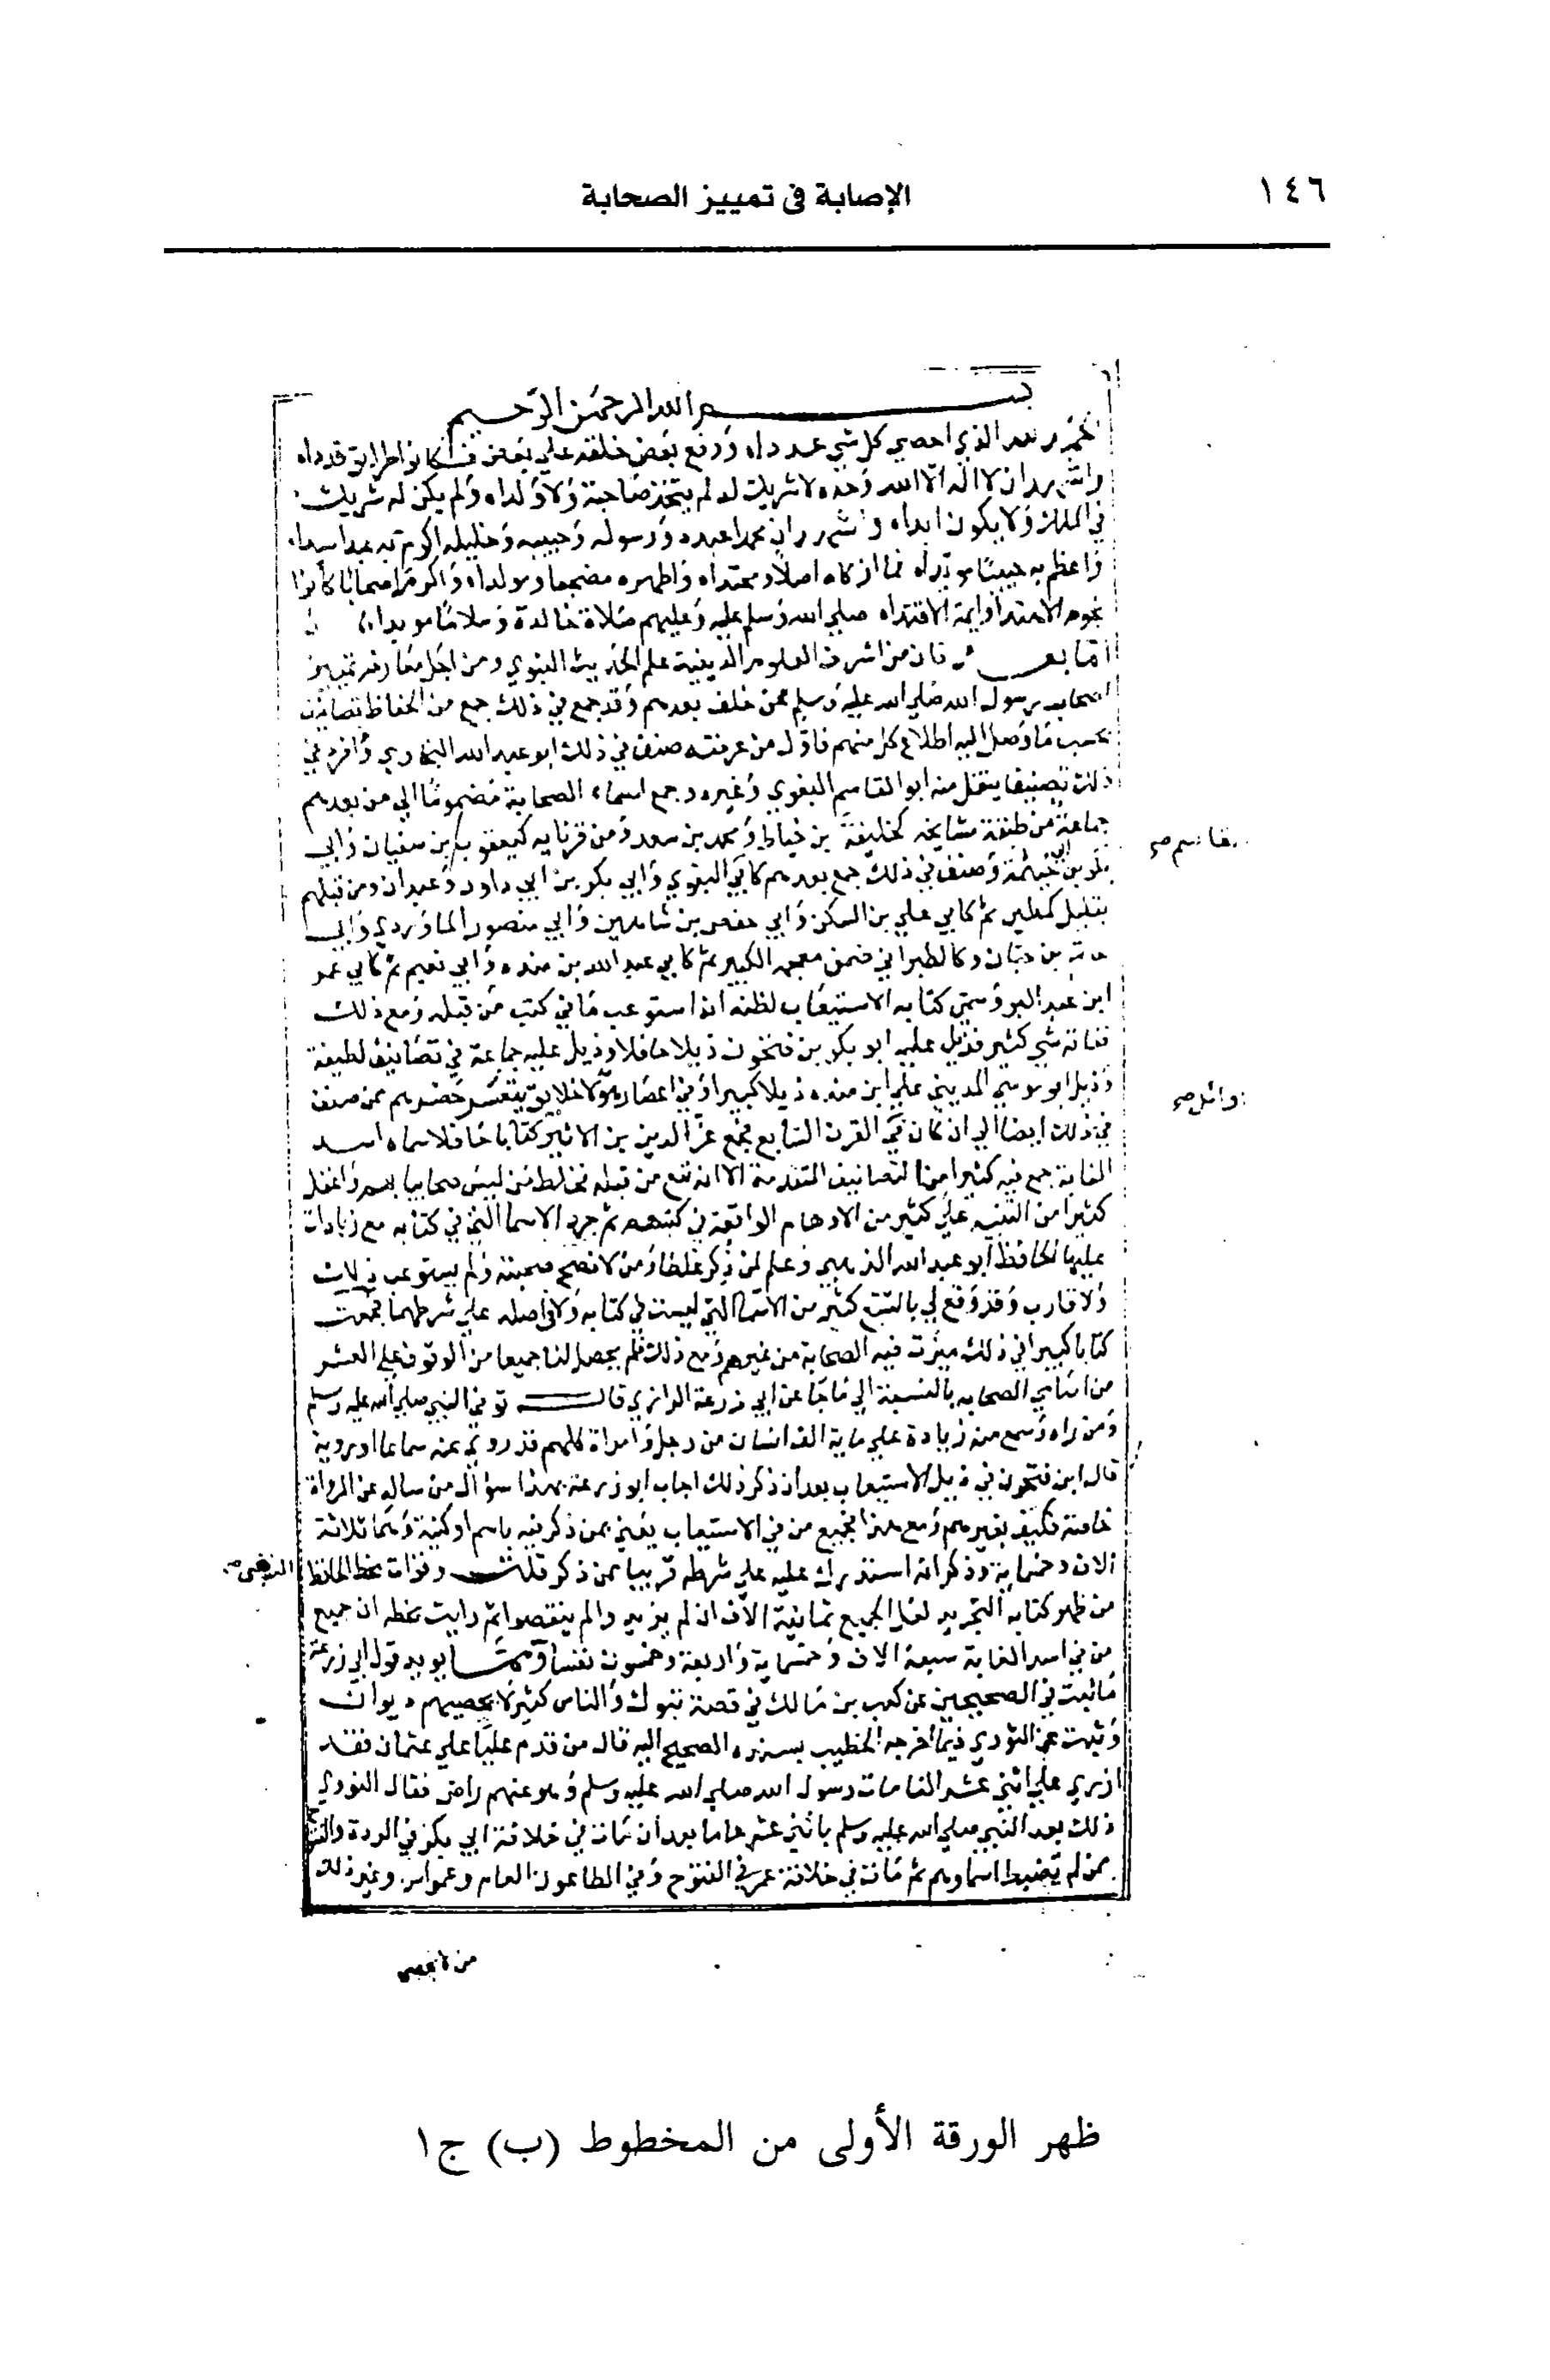 ١٤٦
الإصابة فى تمييز الصحابة
بسم الله الرحمن الرحيم
الحمد لله الذي احصي كل شي عددا ورفع بعض خلقه علي بعض فكانوا طرايق قددا
واشهد ان لا اله الا الله وحده لا شريك له لم يتخذ صاحبة ولا ولدا ولم يكن له شريك
في الملك ولا يكون ابدا واشهد ان محمدا عبده ورسوله وحبيبه وخليله اكرم به عبدا سيدا
واعظم به حبيبا مويدا فما ازكاه اصلا ومحتدا واطهره مضجعا ومولدا واكرم اصحابا كانوا
نجوم الاهتدا وايمة الاقتدا صلي الله وسلم عليه وعليهم صلاة خالدة وسلاما مويدا
اما بعد فان من اشرف العلوم الدينية علم الحديث النبوي ومن اجل معارفه تمييز
اصحاب رسول الله صلي الله عليه وسلم ممن خلف بعدهم وقد جمع في ذلك جمع من الحفاظ تصانيف
بحسب ما وصل اليه اطلاع كل منهم فاول من عرفته صنف في ذلك ابو عبد الله البخاري وافرد في
ذلك تصنيفا ينقل منه ابو القاسم البغوي وغيره وجمع اسماء الصحابة مضموما الي من بعدهم
جماعة من طبقة مشايخه كخليفة بن خياط ومحمد بن سعد ومن قرنايه كيعقوب بن سفيان وابي
بكر بن ابي خيثمة وصنف في ذلك جمع بعدهم كابي البغوي وابي بكر بن ابي داود وعبدان ومن قبلهم
بقليل كمطين ثم كابي علي بن السكن وابي حفص بن شاهين وابي منصور الماوردي وابي
حاتم بن حبان وكالطبراني ضمن معجمه الكبير ثم كابي عبد الله بن منده وابي نعيم ثم كابي عمر
ابن عبد البر وسمي كتابه الاستيعاب لظنه انه استوعب ما في كتب من قبله ومع ذلك
ففاته شي كثير فذيل عليه ابو بكر بن فتحون ذيلا حافلا وذيل عليه جماعة في تصانيف لطيفة
وذيل ابو موسي المديني علي ابن منده ذيلا كبيرا وفي اعصار هولا خلايق يتعسر حصرهم ممن صنف
في ذلك ايضا الي ان كان في القرن السابع فجمع عز الدين بن الاثير كتابا حافلا سماه اسد
الغابة جمع فيه كثيرا من التصانيف المتقدمة الا انه تبع من قبله فخلط من ليس صحابيا بهم واغفل
كثيرا من التنبيه علي كثير من الاوهام الواقعة في كتبهم ثم جرد الاسما التي في كتابه مع زيادات
عليها الحافظ ابو عبد الله الذهبي وعلم لمن ذكر غلطا ومن لا تصح صحبته ولم يستوعب ذلك
ولا قارب وقد وقع لي بالتتبع كثير من الاسما التي ليست في كتابه ولا في اصله علي شرطهما فجمعت
كتابا كبيرا في ذلك ميزت فيه الصحابة من غيرهم ومع ذلك فلم يحصل لنا جميعا من الوقوف علي العشر
من اسامي الصحابه بالنسبة الي ما جا عن ابي زرعة الرازي قال توفي النبي صلي الله عليه وسلم
ومن راه وسمع منه زيادة علي ماية الف انسان من رجل وامراة كلهم قد روي عنه سماعا او روية
قال ابن فتحون في ذيل الاستيعاب بعد ان ذكر ذلك اجاب ابو زرعة بهذا سؤال من ساله عن الرواة
خاصة فكيف بغيرهم ومع هذا فجميع من في الاستيعاب يعني بمن ذكر فيه باسم او كنية وهما ثلاثة
الاف وخمسماية وذكر انه استدرك عليه علي شرطه قريبا ممن ذكر قلت وقرات بخط الحافظ
من ظهر كتابه التجريد لعل الجميع ثمانية الاف ان لم يزيدوا لم ينقصوا ثم رايت بخطه ان جميع
من في اسد الغابة سبعة الاف وخمسماية واربعة وخمسون نفسا ومما يويد قول ابي زرعة
ما ثبت في الصحيحين عن كعب بن مالك في قصة تبوك والناس كثير لا يحصيهم ديوان
وثبت عن الثوري فيما اخرجه الخطيب بسنده الصحيح اليه قال من قدم عليا علي عثمان فقد
ازري علي اثني عشر الفا مات رسول الله صلي الله عليه وسلم وهو عنهم راض فقال النووي
ذلك بعد النبي صلي الله عليه وسلم باثني عشر عاما بعد ان مات في خلافة ابي بكر في الردة والفتوح
ممن لم تضبط اسماوهم ثم مات في خلافة عمر في الفتوح وفي الطاعون العام وعمواس وغير ذلك
من لا يحصي
ظهر الورقة الأولى من المخطوط (ب) ج١